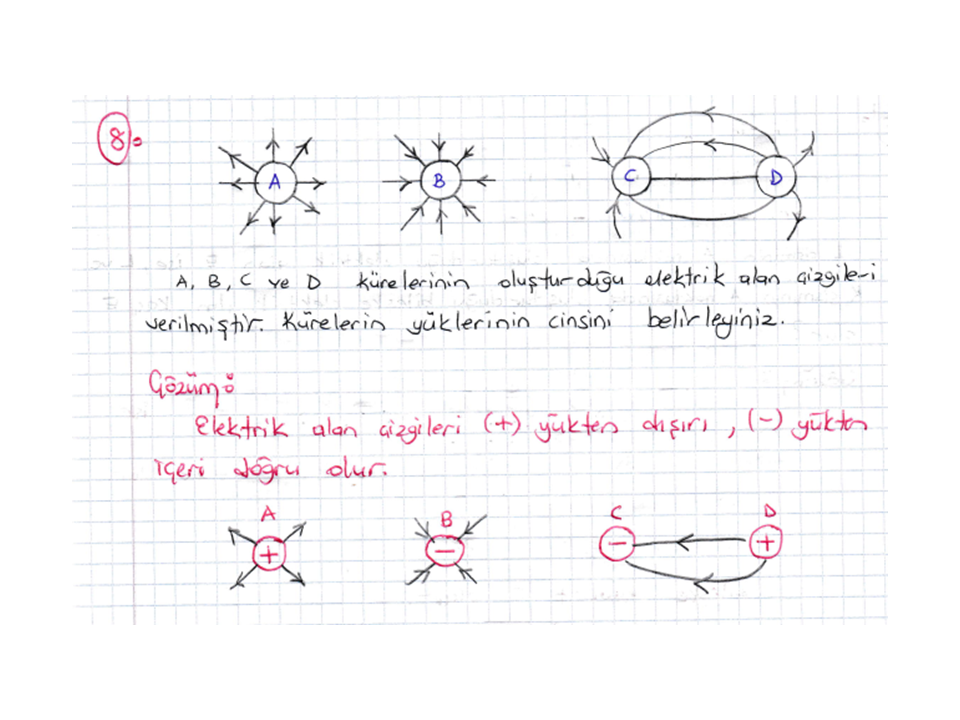 8.
A B C D
A, B, C ve D kürelerinin oluşturduğu elektrik alan çizgileri
verilmiştir. Kürelerin yüklerinin cinsini belirleyiniz.
Çözüm:
Elektrik alan çizgileri (+) yükten dışırı, (-) yükten
içeri doğru olur.
A B C D
+ - - +